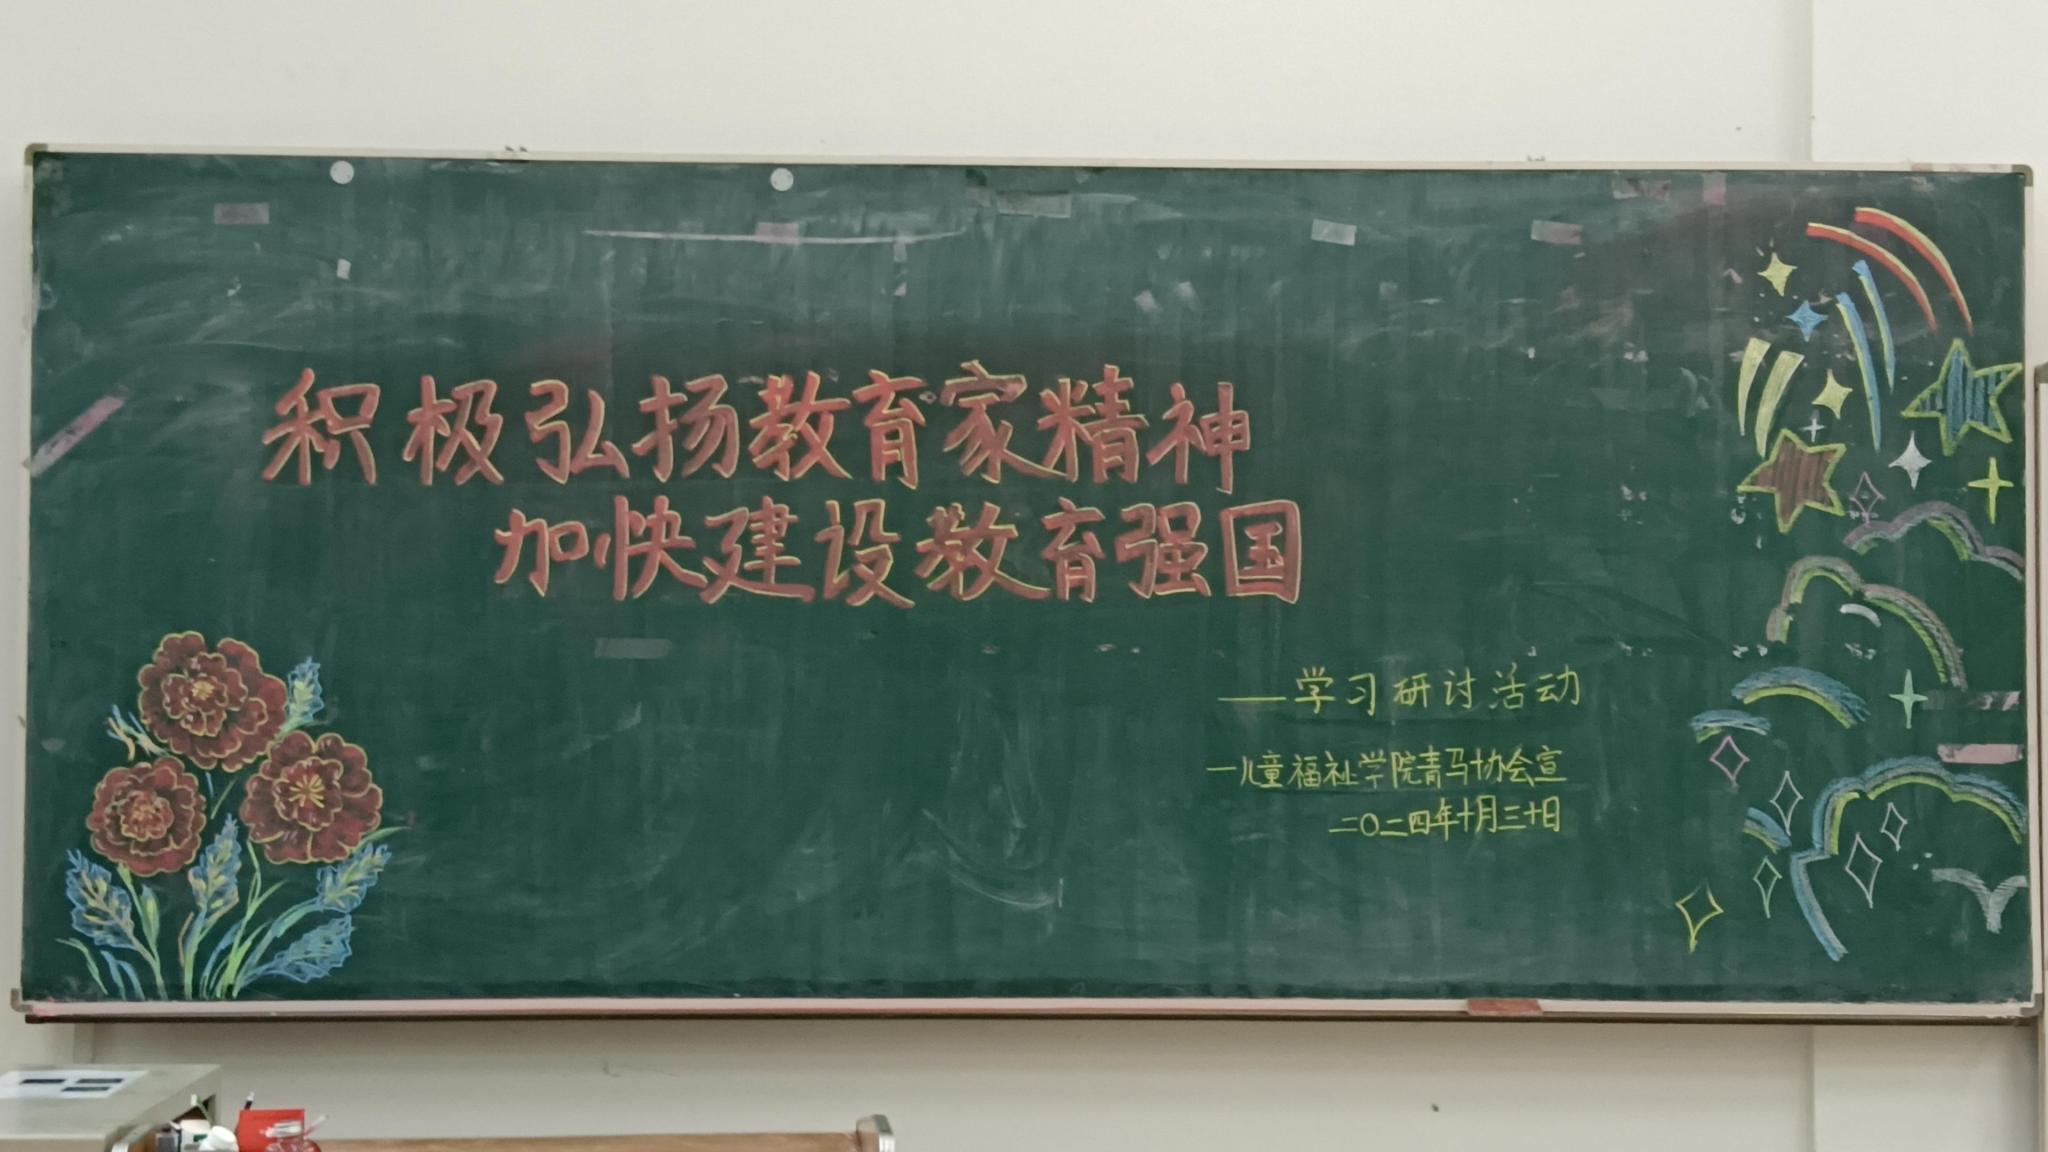 积极弘扬教育家精神
加快建设教育强国
——学习研讨活动
—儿童福祉学院青马协会宣
二〇二四年十月三十日